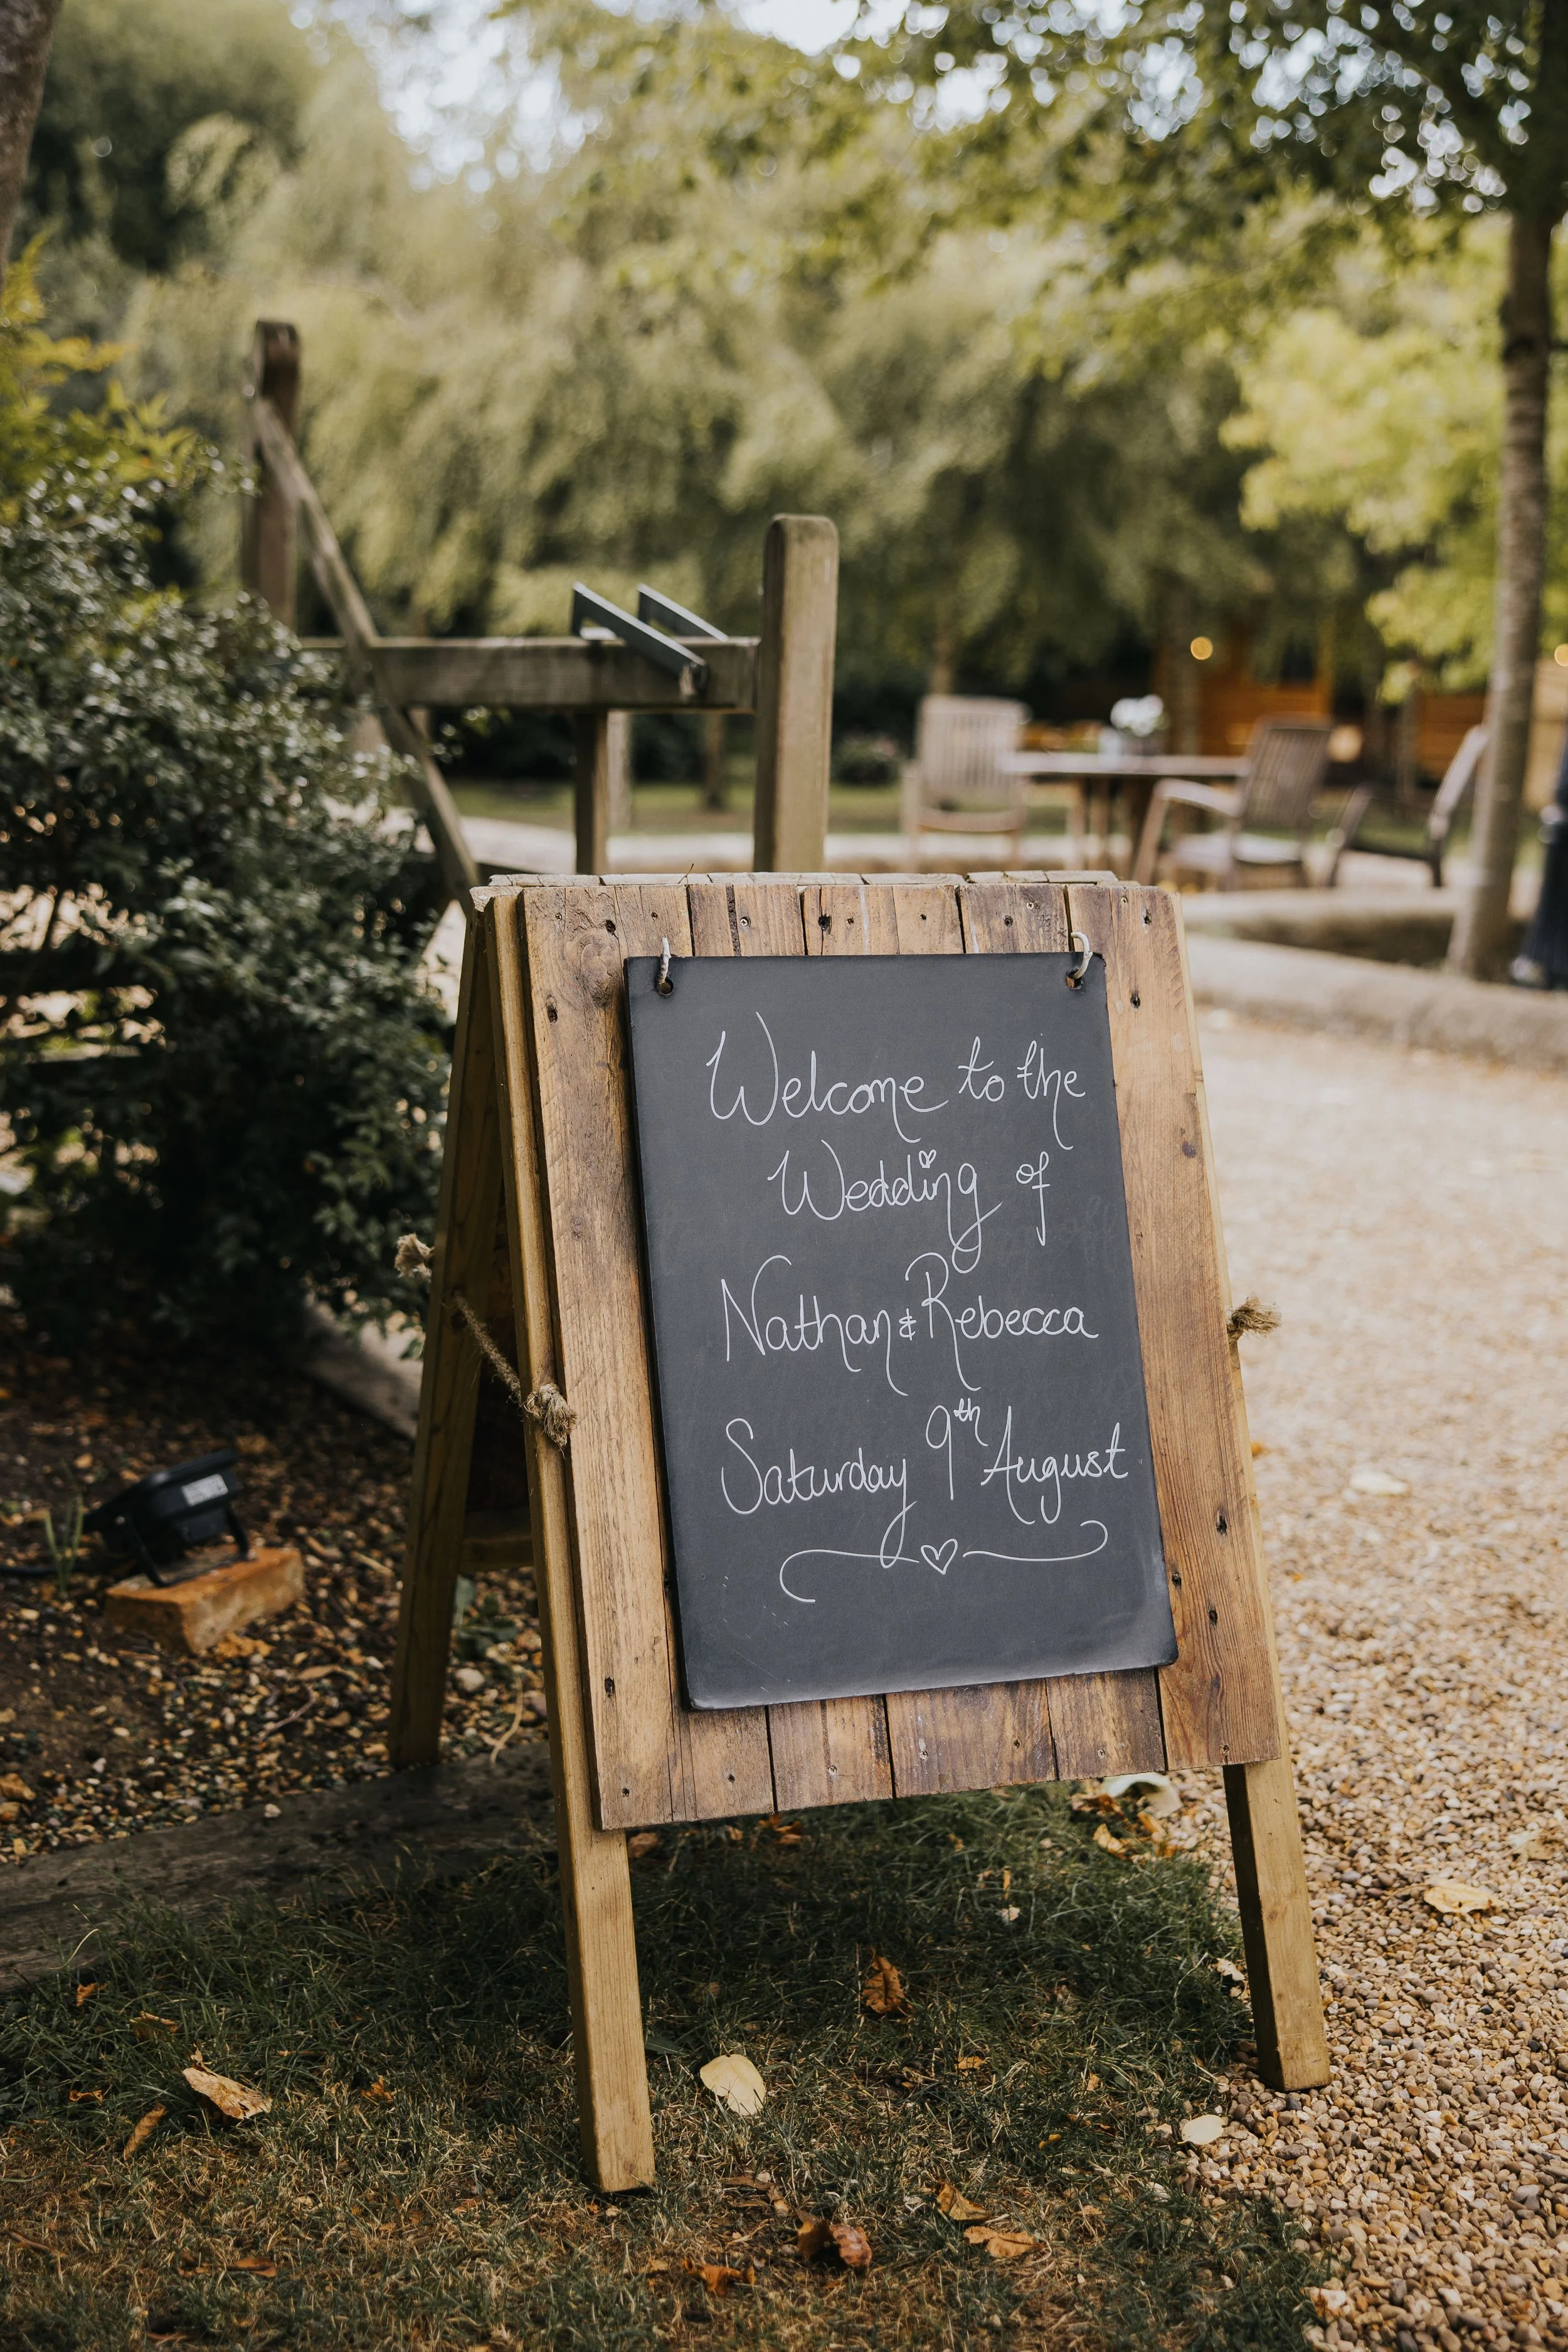 Welcome to the
Wedding of
Nathan & Rebecca
Saturday 9th August